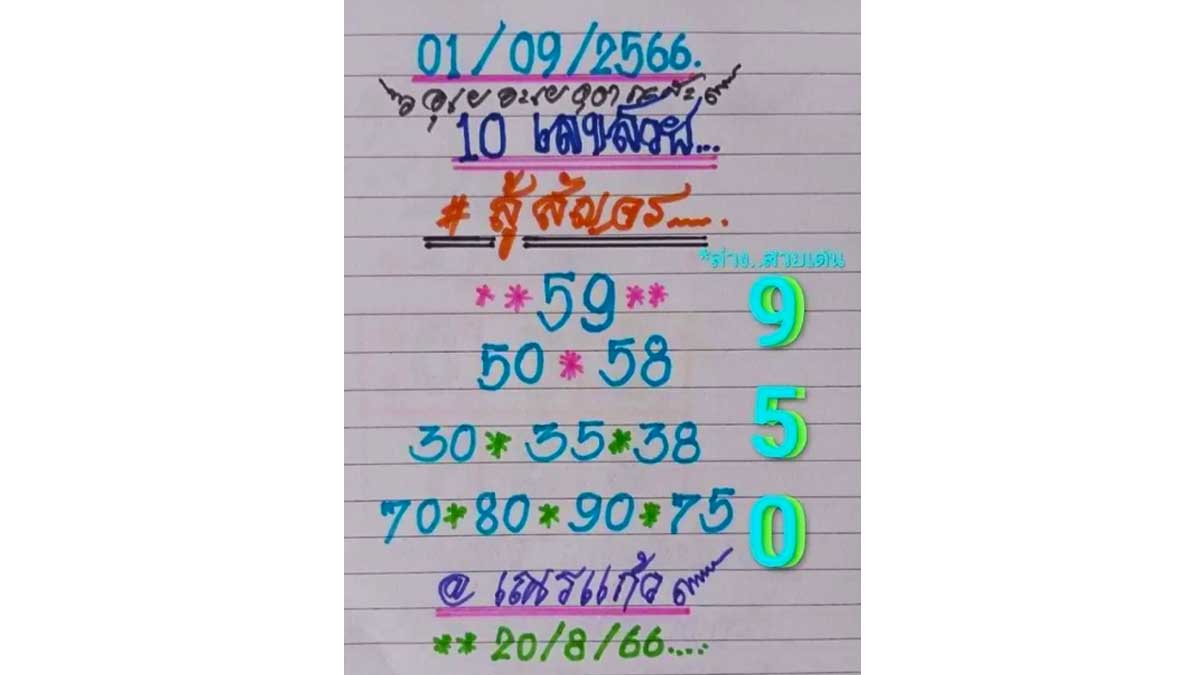 01/09/2566.
10 เลขสวย...
# สู้สัญจร......
*ล่าง..สวยเด่น
**59**
9
50*58
5
30*35*38
70*80*90*75
0
@ เณรแก้ว
** 20/8/66....